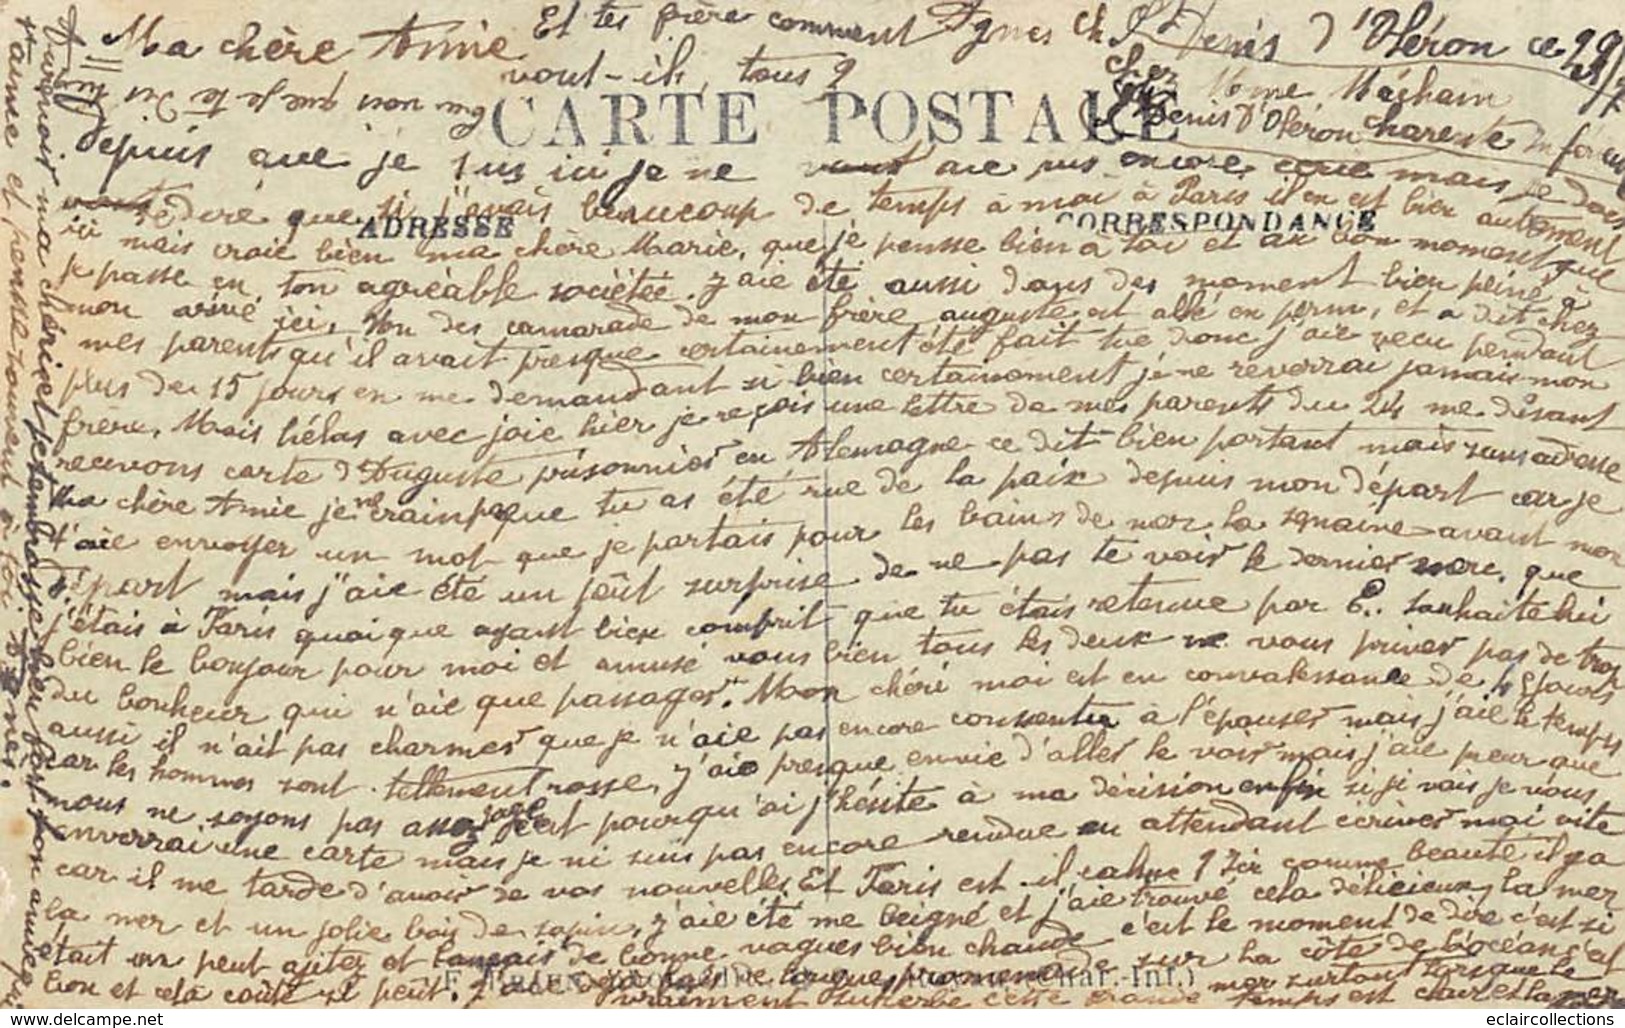 St Denis d'Oléron ce 29/7
Ma chère Amie
Et tes frère comment
vont-ils, tous ?
Agnes Ch
chez Mme Máiham
St Denis d'Oléron Charente Inférieu
CARTE POSTALE
ADRESSE
CORRESPONDANCE
depuis que je suis ici je ne vous aie pas encore écrie mais je dois
te dire que si j'avais beaucoup de temps à moi à Paris il en est bien autement
ici mais croie bien ma chère Marie, que je pensse bien à toi et au bon moment que
je passe en ton agréable sociétée. J'aie été aussi dans des moment bien peiné à
mon arivé ici, Un des camarade de mon frère auguste est allé en perm, et a dit chez
mes parents qu'il avait presque certainement été fait tue donc j'aie vecu pendant
plus de 15 jours en me demandant si bien certainement je ne reverrai jamais mon
frère. Mais hélas avec joie hier je reçois une lettre de mes parents du 24 me disant
recevons carte d'Auguste prisonnier en Alemagne ce dit bien portant mais sans adresse
Ma chère Amie je ne crain pas que tu as été rue de la paix depuis mon départ car je
t'aie envoyer un mot que je partais pour les bains de mer la semaine avant mon
départ mais j'aie été un peut surprise de ne pas te voir le dernier merc. que
j'étais à Paris quoi que ayant bien comprit que tu étais retenue par E.. Souhaite lui
bien le bonjour pour moi et amusé vous bien tous les deux ne vous priver pas de trop
du bonheur qui n'aie que passager. Mon chéri moi est en convalessance de 45 jours
aussi il n'ait pas charmer que je n'aie pas encore consentu à l'épouser mais j'aie le temps
car les hommes sont tellement rosse, J'aie presque envie d'aller le voir mais j'aie peur que
nous ne soyons pas assez sage c'est pourqu'oi j'hésite à ma décision enfin si ji vais je vous
enverrai une carte mais je ni suis pas encore rendue en attendant écriver moi vite
car il me tarde d'avoir de vos nouvelles Et Paris est-il calme ici comme beauté il y a
la mer et un jolie bois de sapin, J'aie été me beigné et j'aie trouvé cela délicieux, la mer
était un peut agitez et lançais de bonne vagues bien chaude c'est le moment de dire c'est si
bon et cela coûte si peut. J'aie longue promenade sur la côte de l'océan c'est
vraiment superbe cette grande mer surtout lorsque le temps est clair et la mer
Au revoir ma chérie et je t'embrasse bien fort ton amie qui
t'aime et pensse souvent à toi
eclaircollections
www.delcampe.net